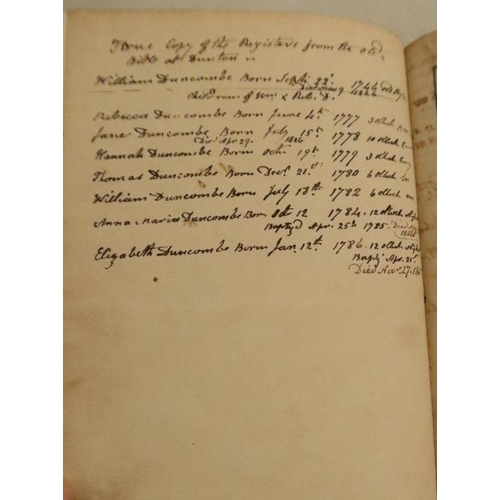 True Copy of the Registers from the old
Bible at Dunton
William Duncombe Born Sept. 22d. 1744
Died 1826
Children of Wm. & Reb. D.
Rebecca Duncombe Born June 4th. 1777 3 oClock
Jane Duncombe Born July 15th. 1778 10 oClock
Died Apr 29. 1826
Hannah Duncombe Born Octr. 19th. 1779 3 oClock
Thomas Duncombe Born Decr. 21st 1780 6 oClock
William Duncombe Born July 18th. 1782 6 oClock
Anna Maria Duncombe Born Oct 12 1784. 12 oClock Night
Baptz'd Apr. 25th 1785. Died
Elizabeth Duncombe Born Jan. 12th. 1786. 12 oClock Night
Baptz'd Apr. 21st.
Died Nov. 27.